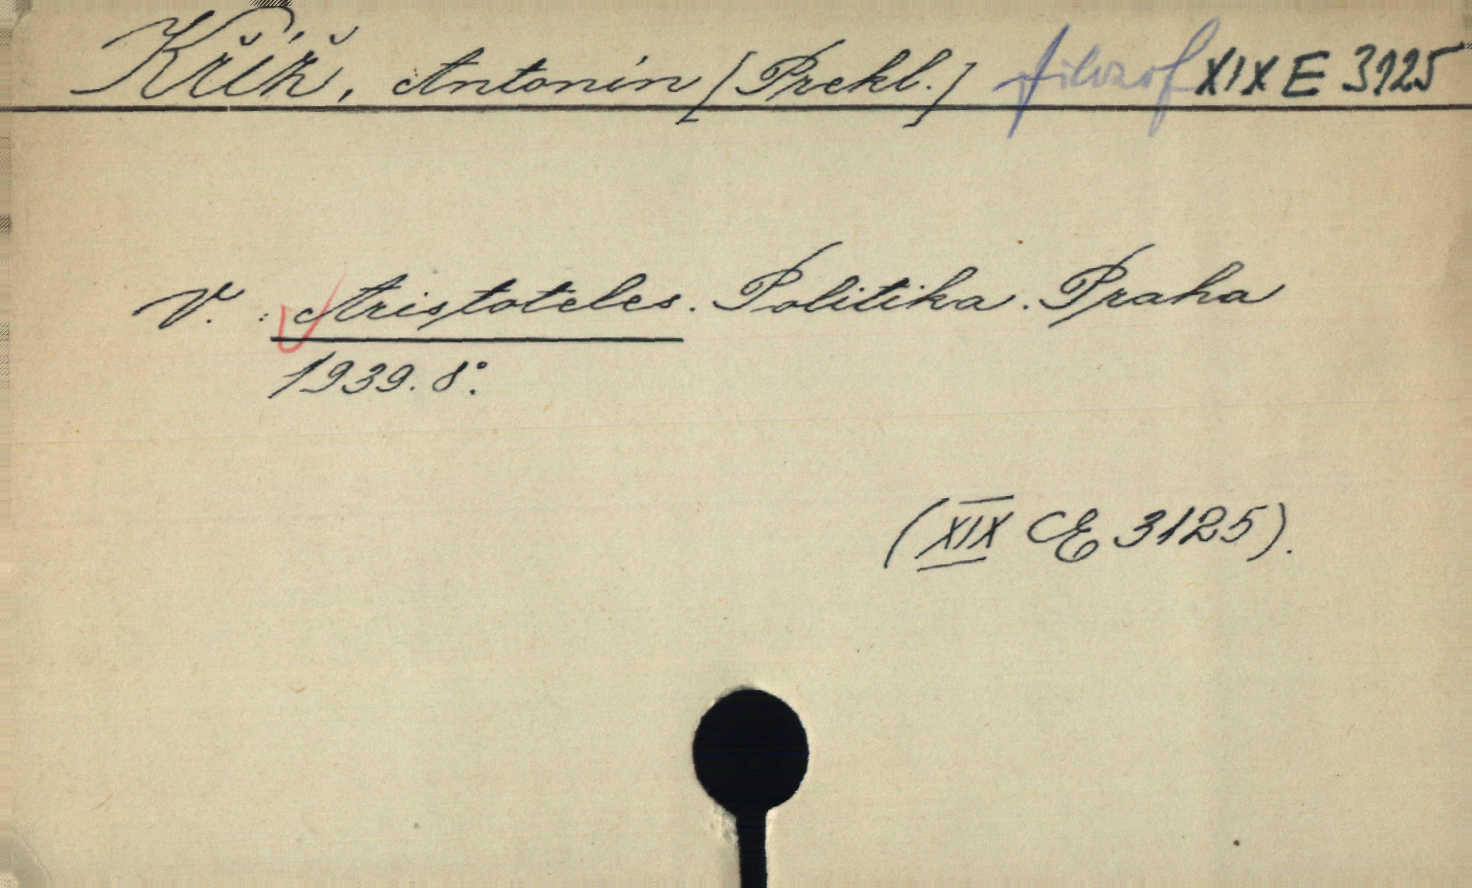 Kříž, Antonín [Prekl.] filozof XIX E 3125
V. : Aristoteles. Politika. Praha
1939. 8°.
(XIX E 3125).